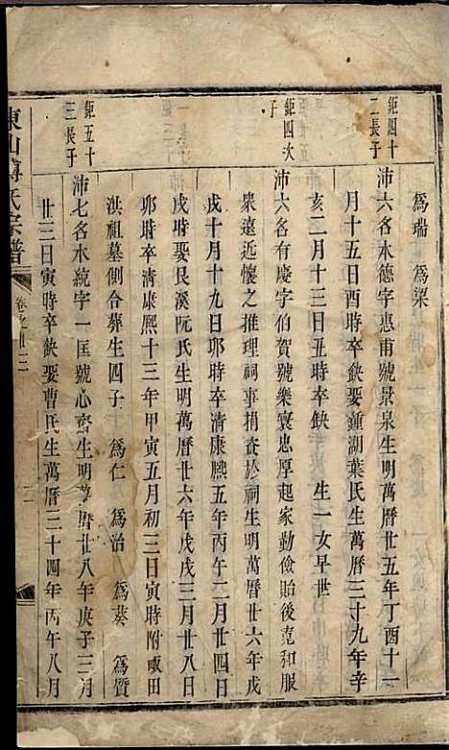 為瑞　為梁
鉅四十二長子
沛六名木德字惠甫號景泉生明萬曆廿五年丁酉十一
月十五日酉時卒缺娶鍾湖葉氏生萬曆三十九年辛
亥二月十三日丑時卒缺　生一女早世
鉅四次子
沛六名有慶字伯賀號樂寰忠厚起家勤儉貽後寬和服
衆遠近懷之推理祠事捐資於祠生明萬曆廿六年戊
戌十月十九日卯時卒清康熙五年丙午二月廿四日
戌時娶艮溪阮氏生明萬曆廿六年戊戌三月廿八日
卯時卒清康熙十三年甲寅五月初三日寅時附東田
洪祖墓側合葬生四子　為仁　為治　為葵　為質
鉅五十三長子
沛七名木統字一匡號心齋生明萬曆廿八年庚子三月
廿三日寅時卒缺娶曹氏生萬曆三十四年丙午八月
東山傅氏宗譜
卷之廿三